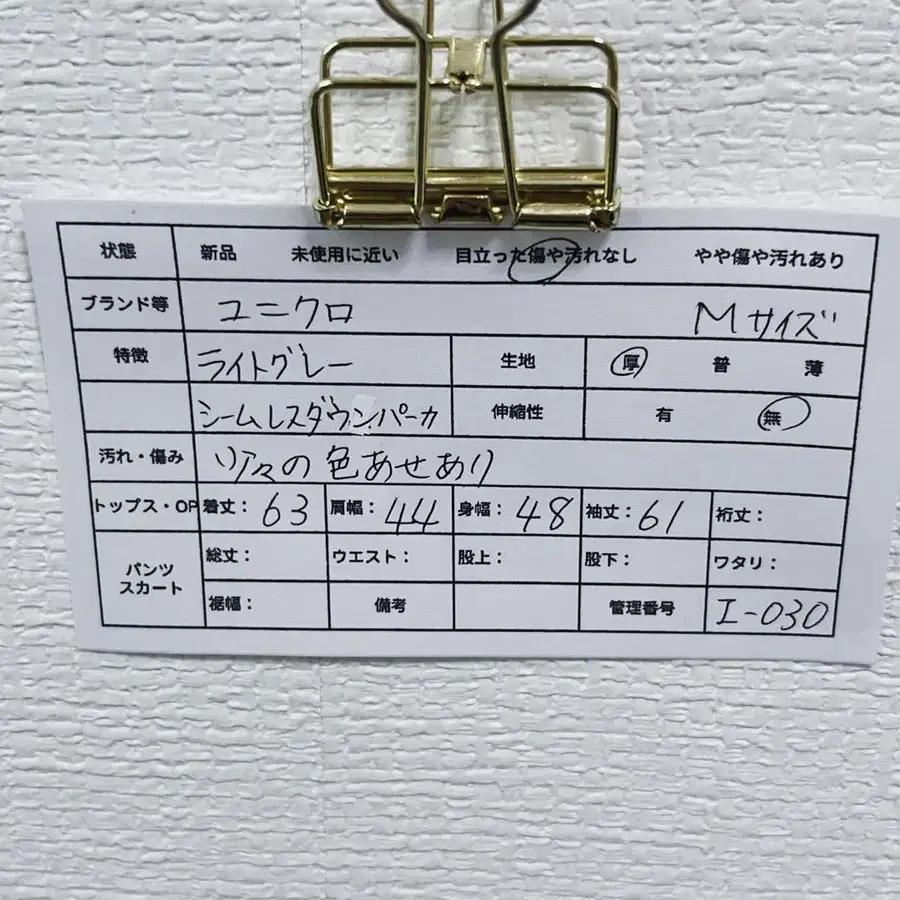 状態 新品 未使用に近い 目立った傷や汚れなし やや傷や汚れあり
ブランド等 ユニクロ Mサイズ
特徴 ライトグレー 生地 厚 普 薄
シームレスダウンパーカ 伸縮性 有 無
汚れ・傷み の色あせあり
トップス・OP 着丈: 63 肩幅: 44 身幅: 48 袖丈: 61 裄丈:
パンツ スカート 総丈: ウエスト: 股上: 股下: ワタリ:
裾幅: 備考 管理番号 I-030